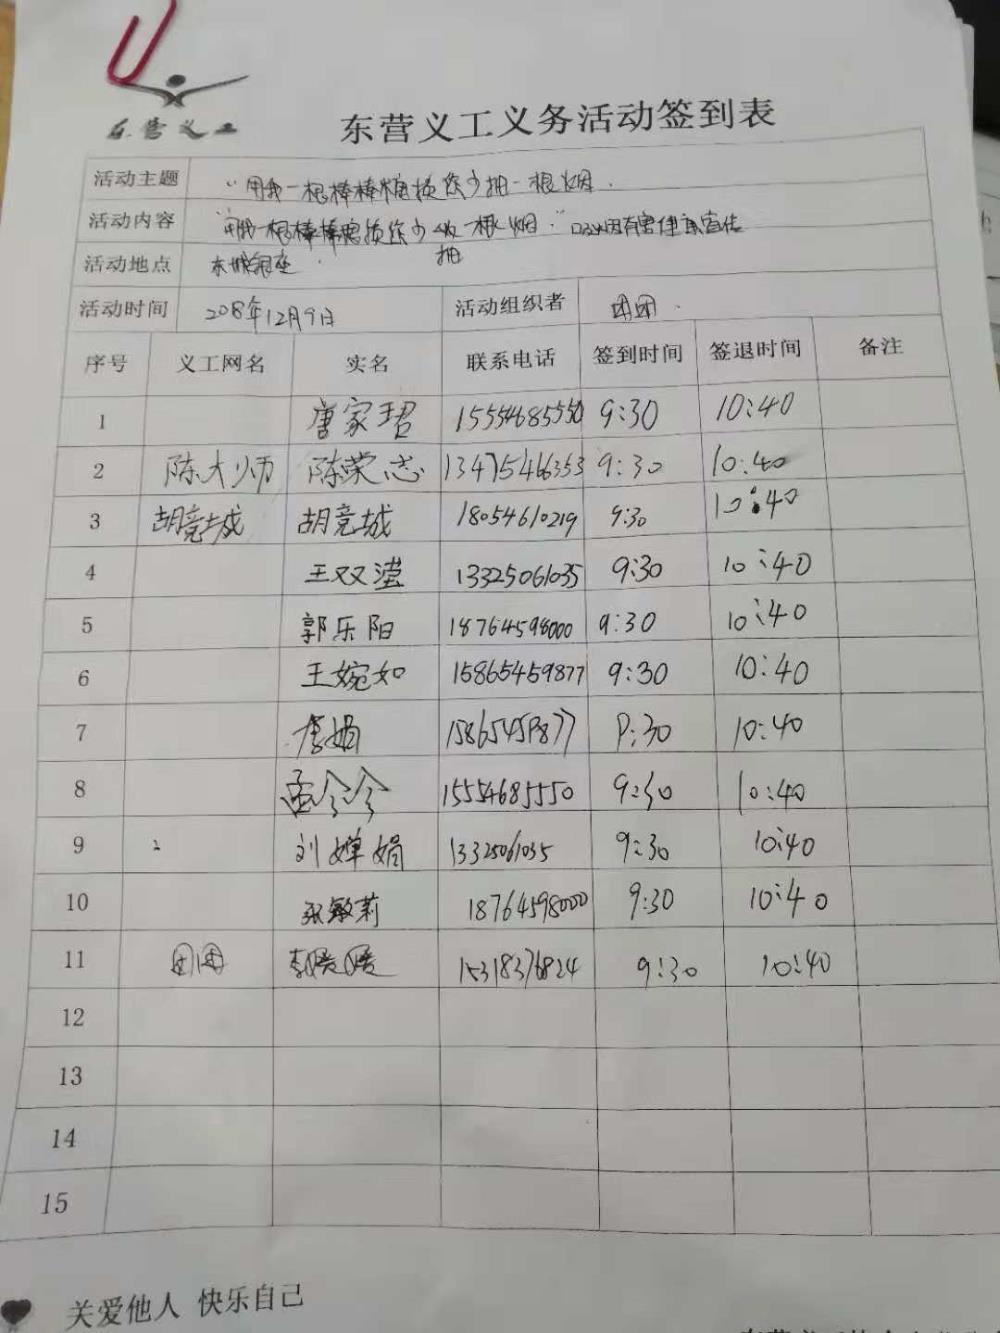 东营义工
东营义工义务活动签到表
活动主题 "用我一根棒棒糖换您少抽一根烟.
活动内容 "用我一根棒棒糖换您少 一根烟." 吸烟有害健康宣传
抽
活动地点 东城银座
活动时间 208年12月9日 活动组织者 团团.
序号 义工网名 实名 联系电话 签到时间 签退时间 备注
1 唐家珺 15554685550 9:30 10:40
2 陈大师 陈荣志 13475466353 9:30 10:40
3 胡竞城 胡竞城 18054610219 9:30 10:40
4 王双滢 13325061035 9:30 10:40
5 郭乐阳 18764598000 9:30 10:40
6 王婉如 15865459877 9:30 10:40
7 李娟 15865459877 9:30 10:40
8 孟令令 15554685550 9:30 10:40
9 刘婵娟 13325061035 9:30 10:40
10 张敏莉 18764598000 9:30 10:40
11 团团 李媛媛 15318376824 9:30 10:40
12
13
14
15
关爱他人 快乐自己